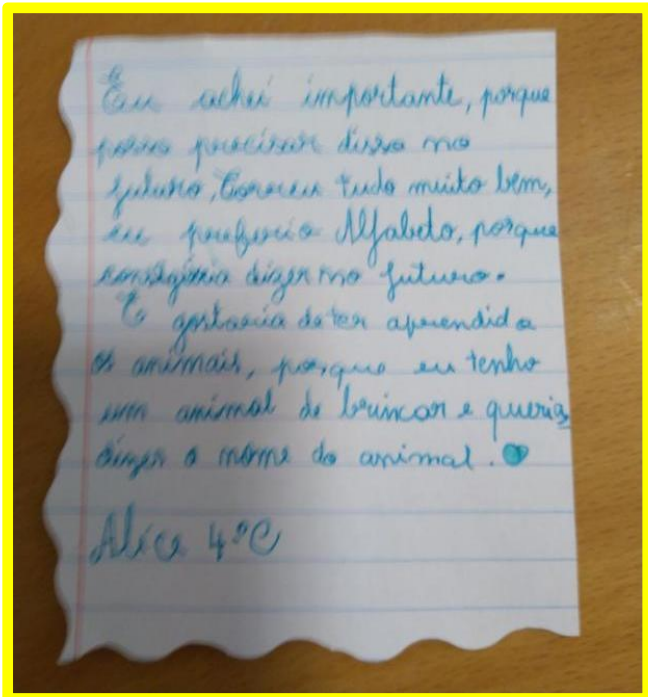 Eu achei importante, porque
posso precisar disso no
futuro, Correu tudo muito bem,
eu prefiria Alfabeto, porque
conseguiria dizer no futuro.
E gostaria de ter aprendido
os animais, porque eu tenho
um animal de brincar e queria
dizer o nome do animal.
Alice 4ºC